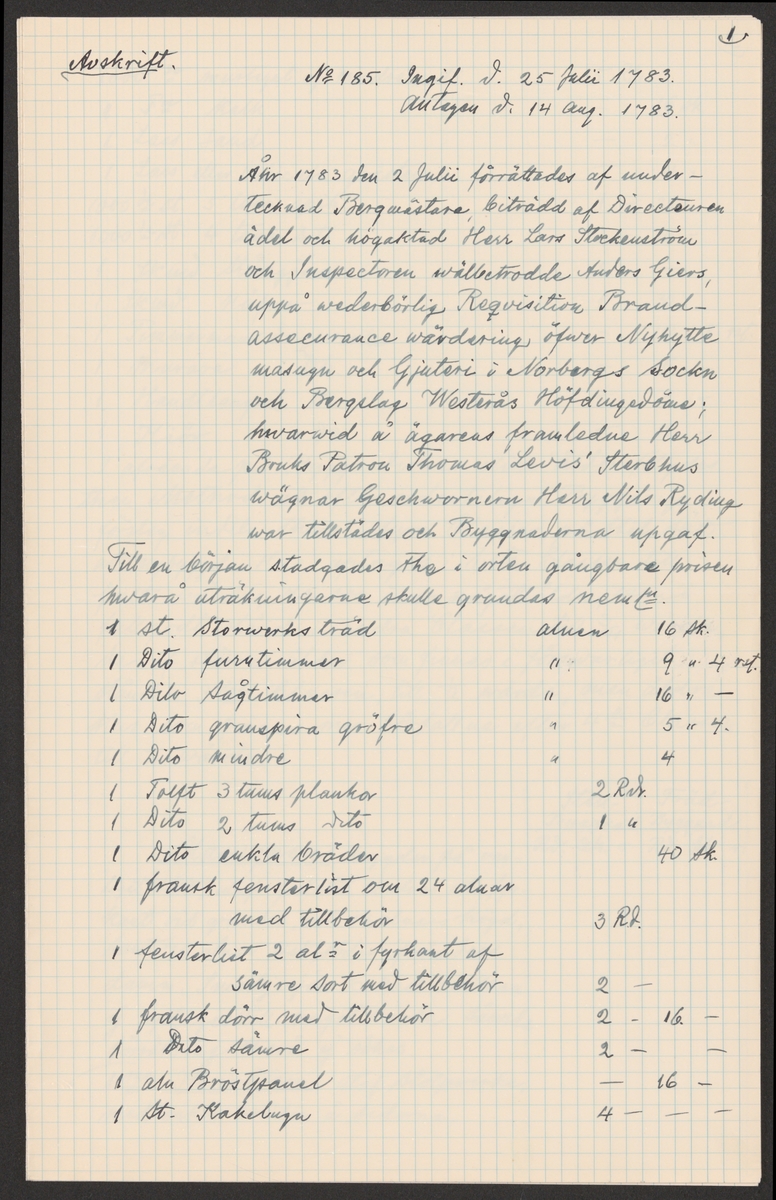 1
Avskrift.
No 185. Ingif. d. 25 Julii 1783.
Antagen d. 14 Aug. 1783.
Åhr 1783 den 2 Julii förrättades af under-
tecknad Bergmästare, biträdd af Directeuren
ädel och högaktad Herr Lars Stockenström
och Inspectoren wälbetrodde Anders Giers,
uppå wederbörlig Reqvisition Brand-
assecurance wärdering öfwer Nyhytte
masugn och Gjuteri i Norbergs Sockn
och Bergslag Westerås Höfdingedöme;
hwarwid å ägarens framledne Herr
Bruks Patron Thomas Levis' Sterbhus
wägnar Geschwornern Herr Nils Ryding
war tillstädes och Byggnaderna upgaf.
Till en början stadgades the i orten gångbara prisen
hwarå uträkningarne skulle grundas neml.
1 st. Storwerksträd alnen 16 sk.
1 Dito furutimmer " 9 " 4 rst.
1 Dito Sågtimmer " 16 " —
1 Dito granspira gröfre " 5 " 4.
1 Dito mindre " 4
1 Tolft 3 tums plankor 2 Rdr.
1 Dito 2 tums dito 1 "
1 Dito enkla bräder 40 sk.
1 fransk fensterlist om 24 alnar
med tillbehör 3 Rd.
1 fensterlist 2 alr i fyrkant af
sämre sort med tillbehör 2 —
1 fransk dörr med tillbehör 2 - 16. —
1 Dito sämre 2 — —
1 aln Bröstpanel — 16 —
1 St. Kakelugn 4 — — —